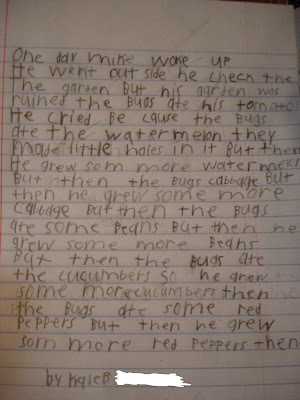 One dar mike woke up
He went out side he check the
The garden But his garden was
ruined the Bugs ate his tomatoe
He cried Be cause the Bugs
ate the watermelon they
made little holes in it But then
He grew som more watermelo
But then the Bugs cabbage But
then he grew some more
cabbage But then the Bugs
ate some Beans But then he
grew some more Beans
But then the Bugs ate
the cucumbers so he grew
some more cucumbers then
the Bugs ate some red
peppers But then he grew
som more red peppers then
by kaleB